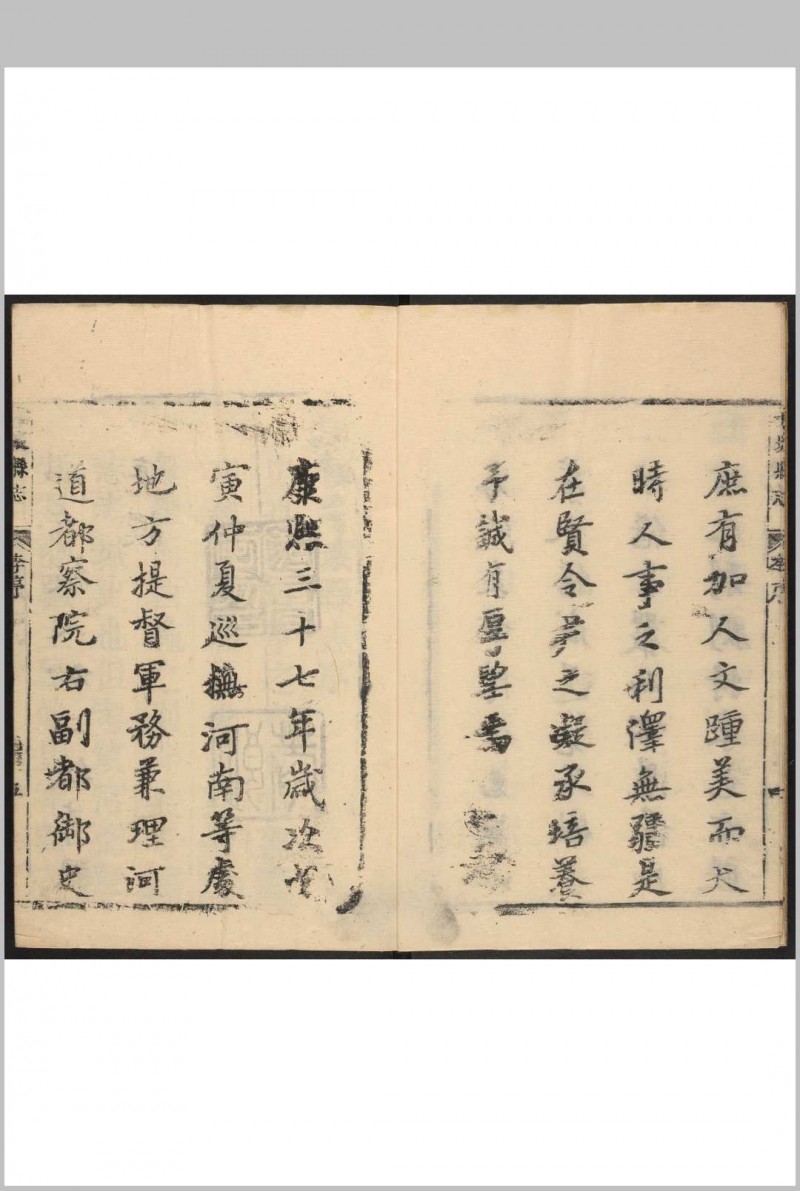 庶有加人文踵美而大
時人事之利澤無疆是
在賢令尹之凝承培養
予誠有厚望焉
康熙三十七年歲次
寅仲夏巡撫河南等處
地方提督軍務兼理河
道都察院右副都御史
縣志
五